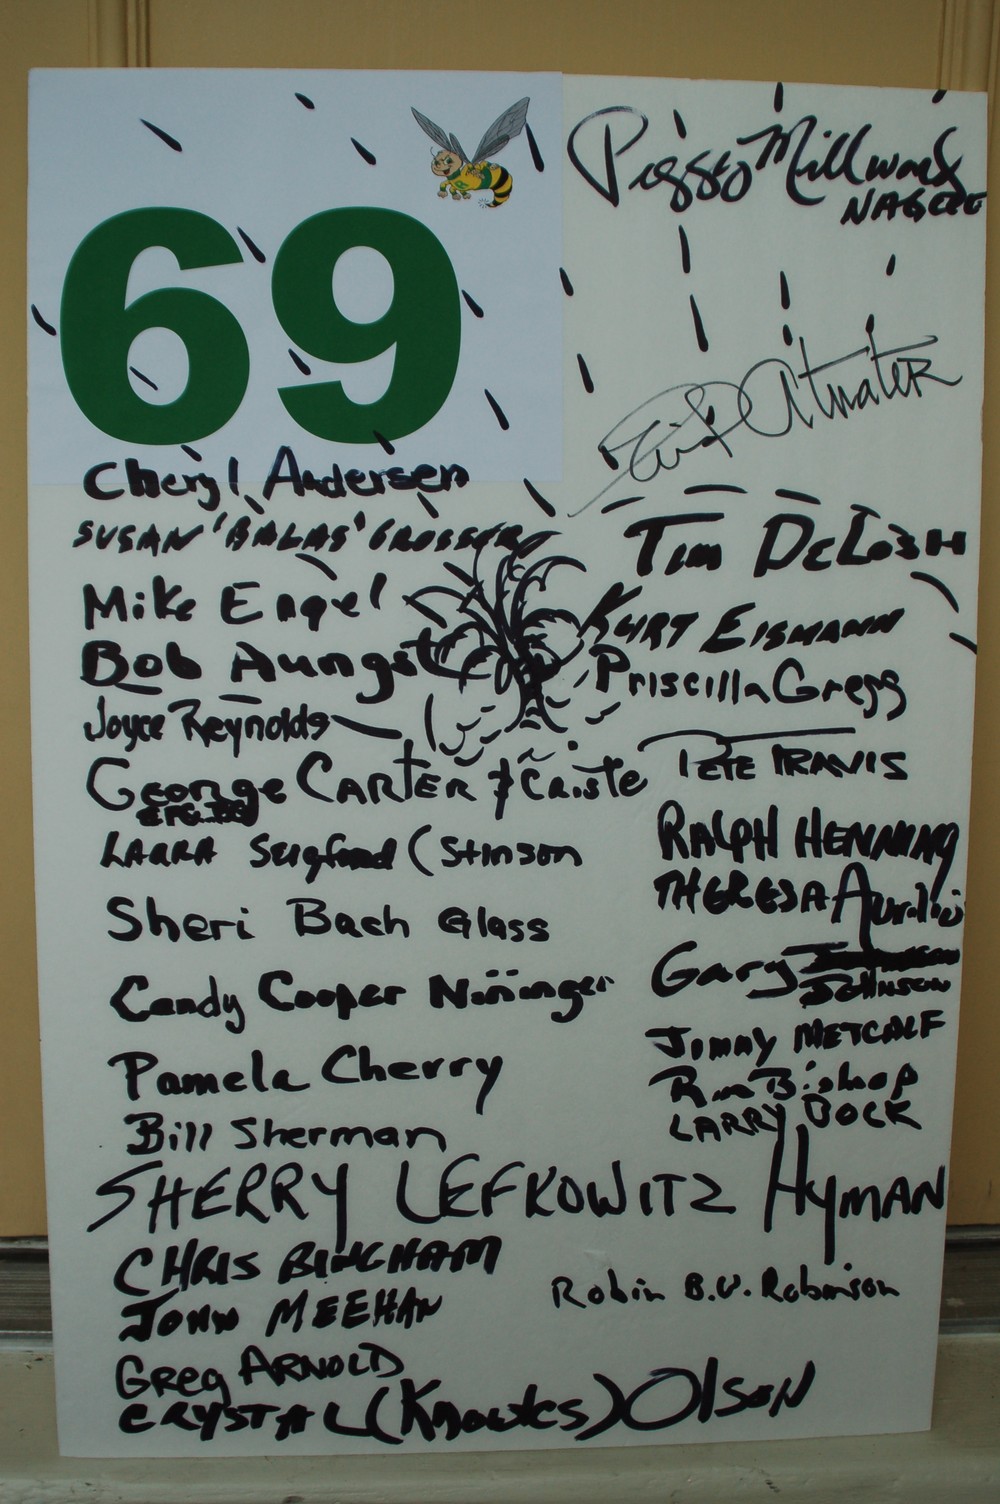 69
Peggy Millward
Atwater
Cheryl Andersen
SUSAN 'BALAS'
Tim DeLosh
Mike Engel
KURT EISMANN
Bob Aungst
Priscilla Gregg
Joyce Reynolds
PETE TRAVIS
George CARTER & Criste
RALPH HENNING
LAURA (Stinson
THERESA
Sheri Bach Glass
Gary Johnson
Candy Cooper Nininger
JIMMY METCALF
Pamela Cherry
Ron Bishop
LARRY BOCK
Bill Sherman
SHERRY LEFKOWITZ HYMAN
CHRIS BINGHAM
Robin B.U. Robinson
JOHN MEEHAN
Greg ARNOLD
CRYSTAL (Knowles) Olson